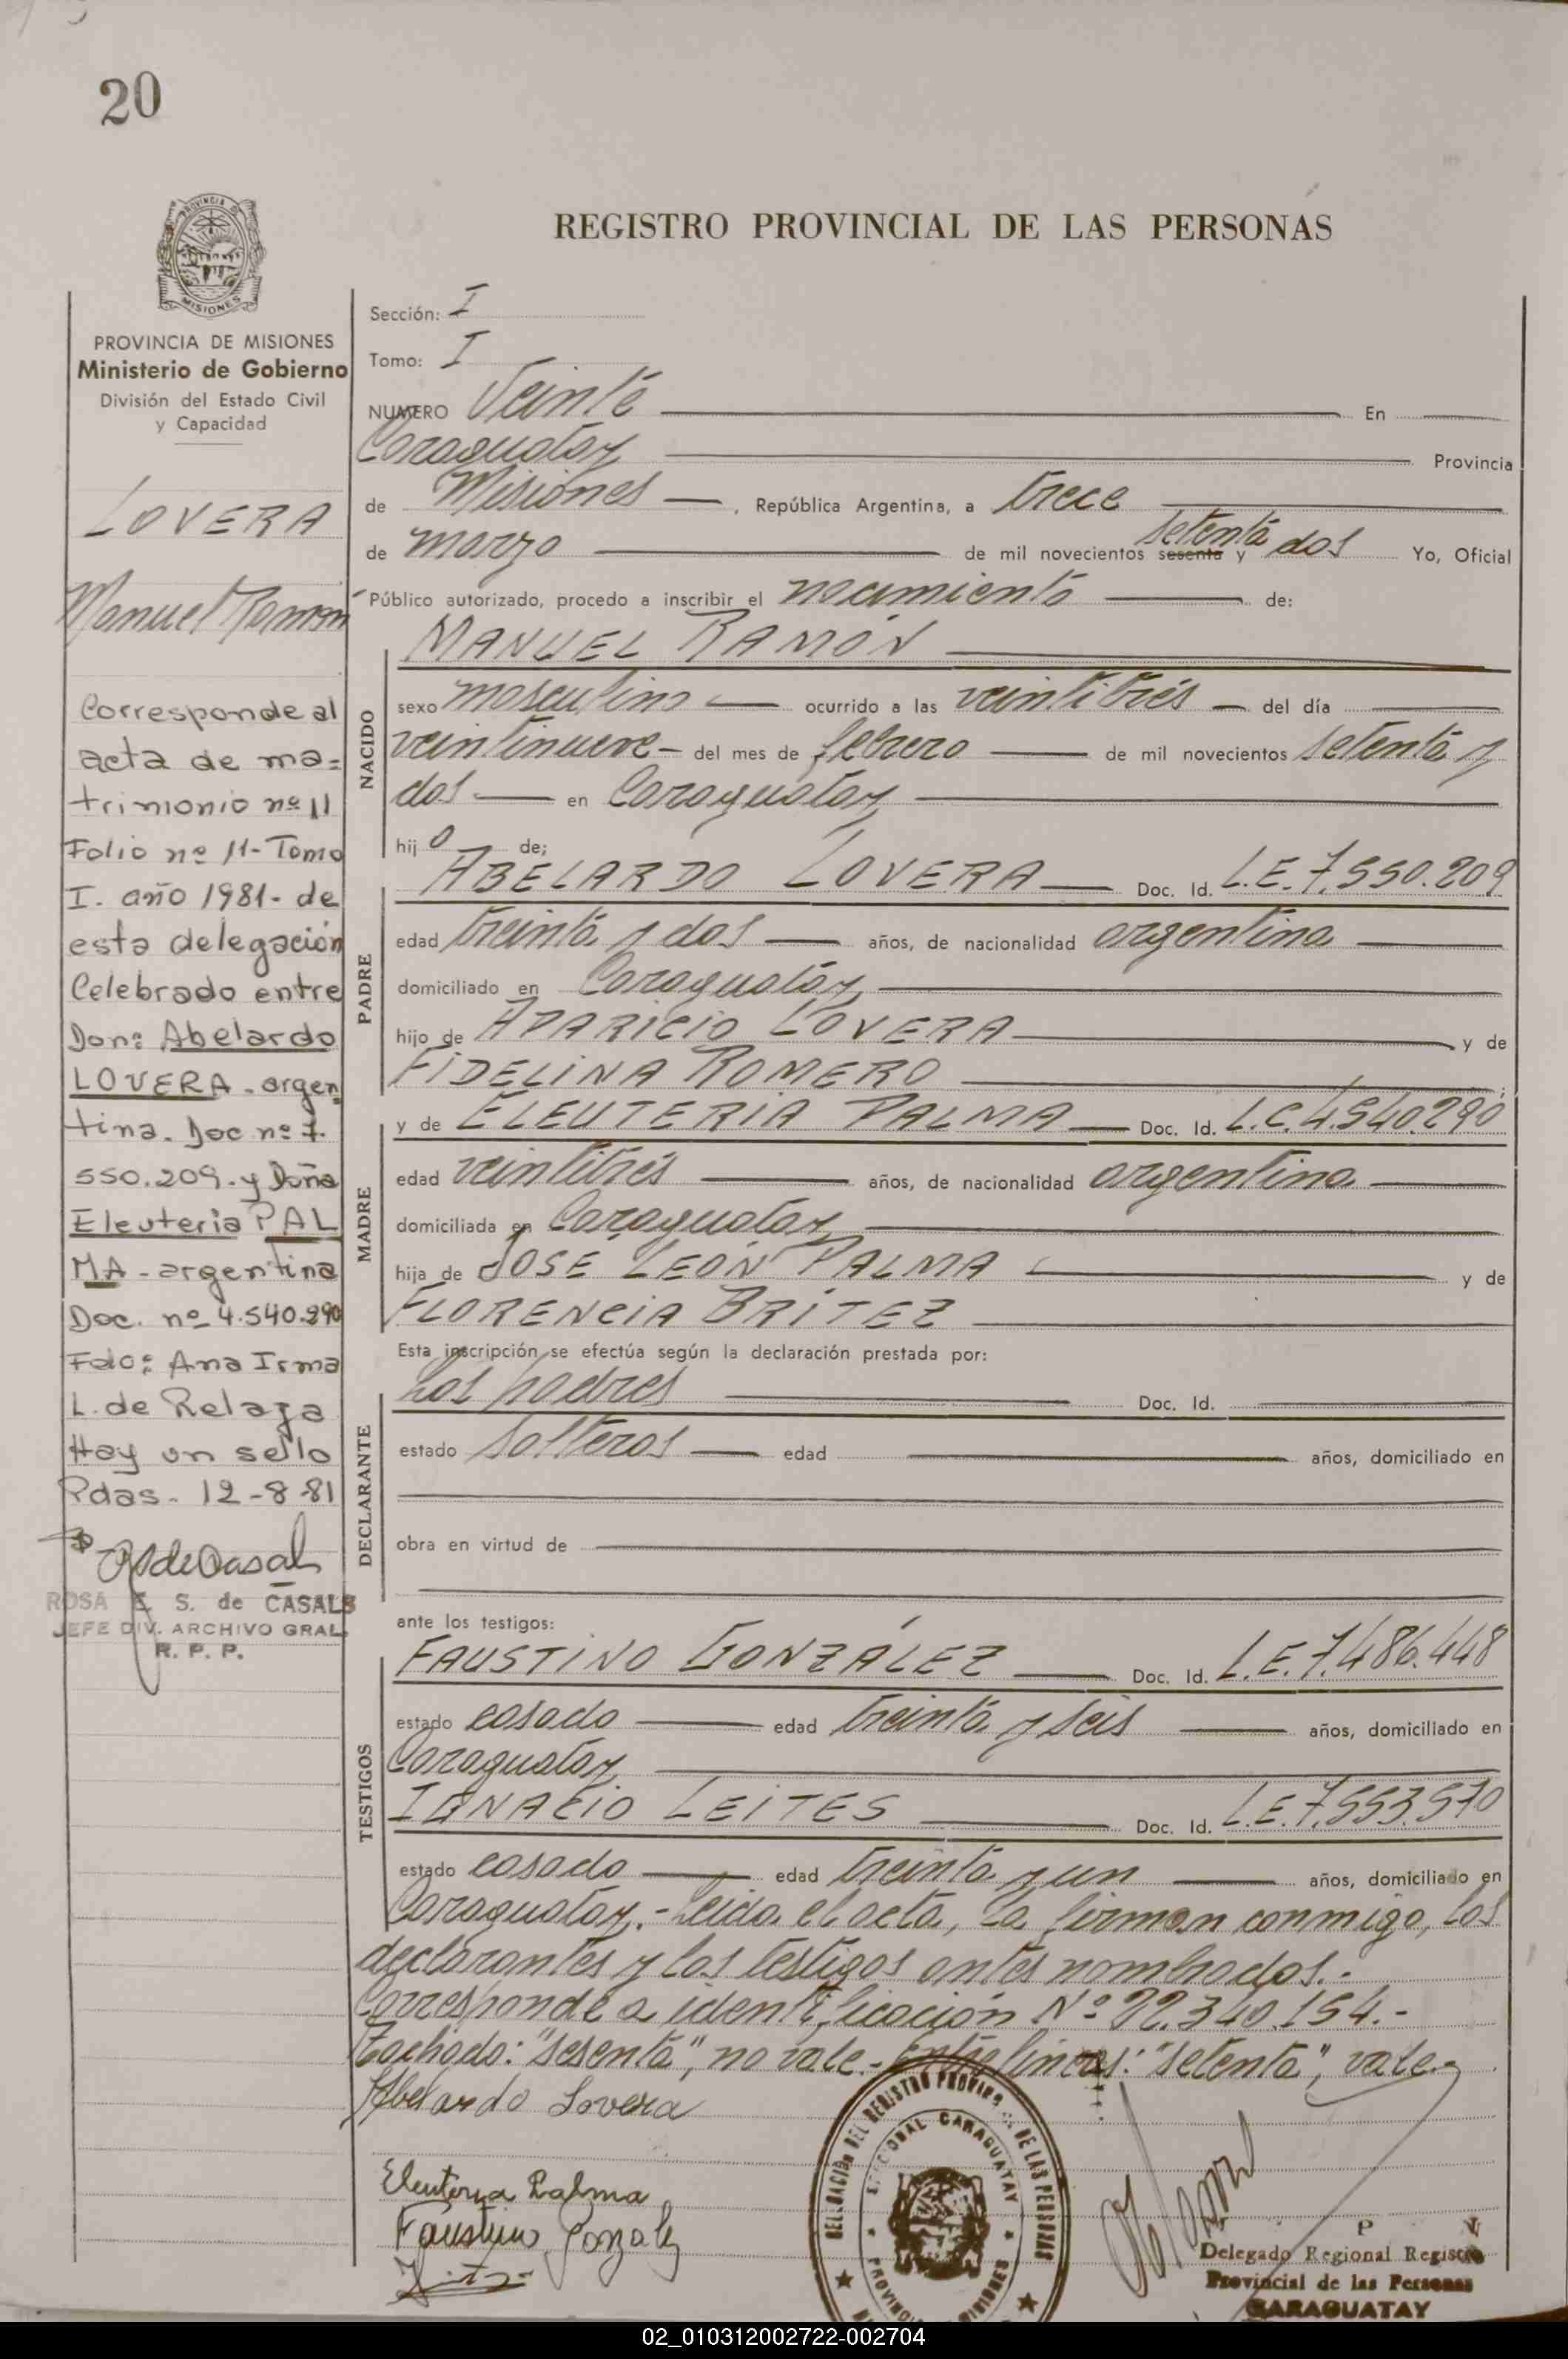 20
PROVINCIA DE
MISIONES
PROVINCIA DE MISIONES
Ministerio de Gobierno
División del Estado Civil
y Capacidad
LOVERA
Manuel Ramon
Corresponde al
acta de ma=
trimonio nº 11
Folio nº 11-Tomo
I. año 1981- de
esta delegación
Celebrado entre
Don: Abelardo
LOVERA - argen
tina. Doc nº 7.
550.209. y Doña
Eleuteria PAL
MA - argentina
Doc. nº 4.540.290
Fdo: Ana Irma
L. de Relaza
Hay un sello
Pdas. 12-8-81
ROSA E. S. de CASALS
JEFE DIV. ARCHIVO GRAL.
R. P. P.
REGISTRO PROVINCIAL DE LAS PERSONAS
Sección: I
Tomo: I
NUMERO Veinte En
Caraguatay Provincia
de Misiones, República Argentina, a trece
setenta
de marzo de mil novecientos sesenta y dos Yo, Oficial
Público autorizado, procedo a inscribir el nacimiento de:
MANUEL RAMÓN
NACIDO
sexo masculino ocurrido a las veintitrés del día
veintinueve del mes de febrero de mil novecientos setenta y
dos en Caraguatay
hijo de;
ABELARDO LOVERA Doc. Id. L.E. 7.550.209
PADRE
edad treinta y dos años, de nacionalidad argentina
domiciliado en Caraguatay
hijo de APARICIO LOVERA y de
FIDELINA ROMERO ;
y de ELEUTERIA PALMA Doc. Id. L.C. 4.540.290
MADRE
edad veintitrés años, de nacionalidad argentina
domiciliada en Caraguatay
hija de JOSÉ LEÓN PALMA y de
FLORENCIA BRÍTEZ
Esta inscripción se efectúa según la declaración prestada por:
Los padres Doc. Id.
DECLARANTE
estado solteros edad años, domiciliado en
obra en virtud de
ante los testigos:
FAUSTINO GONZÁLEZ Doc. Id. L.E. 7.486.448
TESTIGOS
estado casado edad treinta y seis años, domiciliado en
Caraguatay
IGNACIO LEITES Doc. Id. L.E. 7.553.570
estado casado edad treinta y un años, domiciliado en
Caraguatay.- Leída el acta, la firman conmigo, los
declarantes y los testigos antes nombrados.-
Corresponde a identificación Nº 22.340.154.-
Tachado: "sesenta", no vale.- Entrelíneas: "setenta", vale.-
Abelardo Lovera
Eleuteria Palma
Faustino Gonzalez
DELEGACION DEL REGISTRO PROVINCIAL DE LAS PERSONAS
SECCIONAL CARAGUATAY
Delegado Regional Registro
Provincial de las Personas
CARAGUATAY
02_010312002722-002704